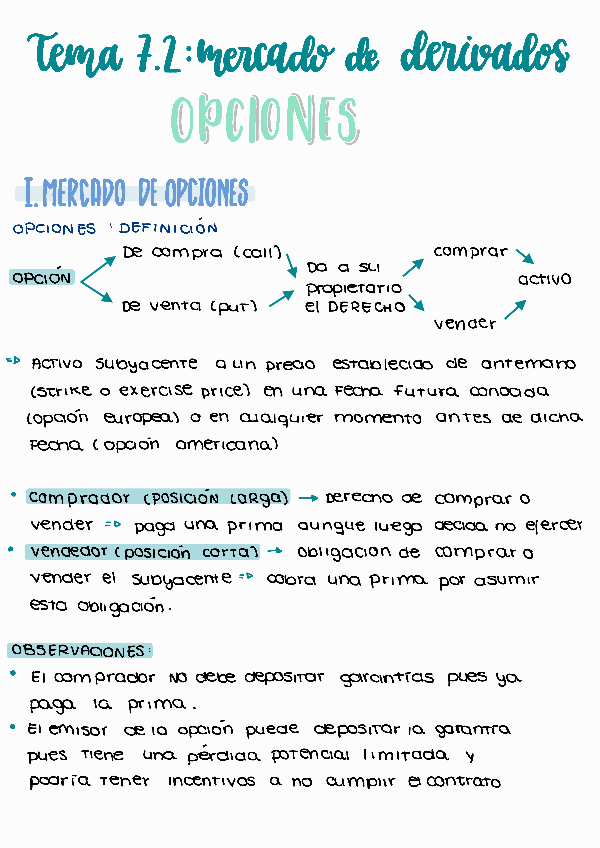 Tema 7.2: mercado de derivados
OPCIONES
I. MERCADO DE OPCIONES
OPCIONES: DEFINICIÓN
De compra (call)
comprar
OPCIÓN
Da a su
propietario
el DERECHO
activo
De venta (put)
vender
=> Activo subyacente a un precio establecido de antemano
(strike o exercise price) en una fecha futura conocida
(opción europea) o en cualquier momento antes de dicha
fecha (opción americana)
• comprador (posición larga) → Derecho de comprar o
vender => paga una prima aunque luego decida no ejercer
• vendedor (posición corta) → obligacion de comprar o
vender el subyacente => cobra una prima por asumir
esta obligación.
OBSERVACIONES:
• El comprador NO debe depositar garantías pues ya
paga la prima.
• El emisor de la opción puede depositar la garantía
pues tiene una pérdida potencial limitada y
podría tener incentivos a no cumplir el contrato